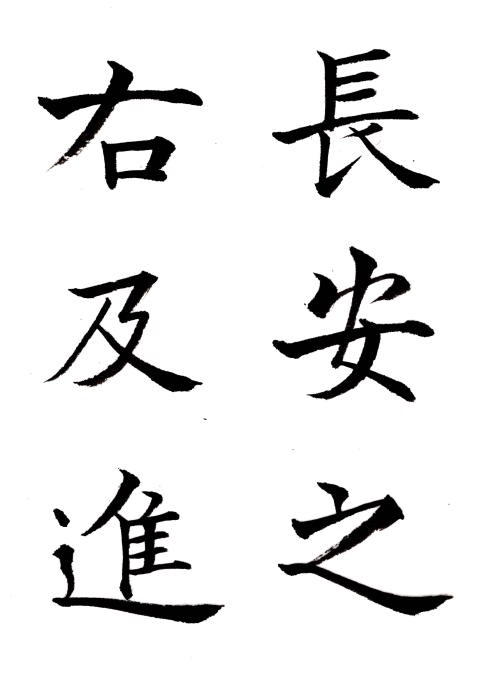 長安之
右及進